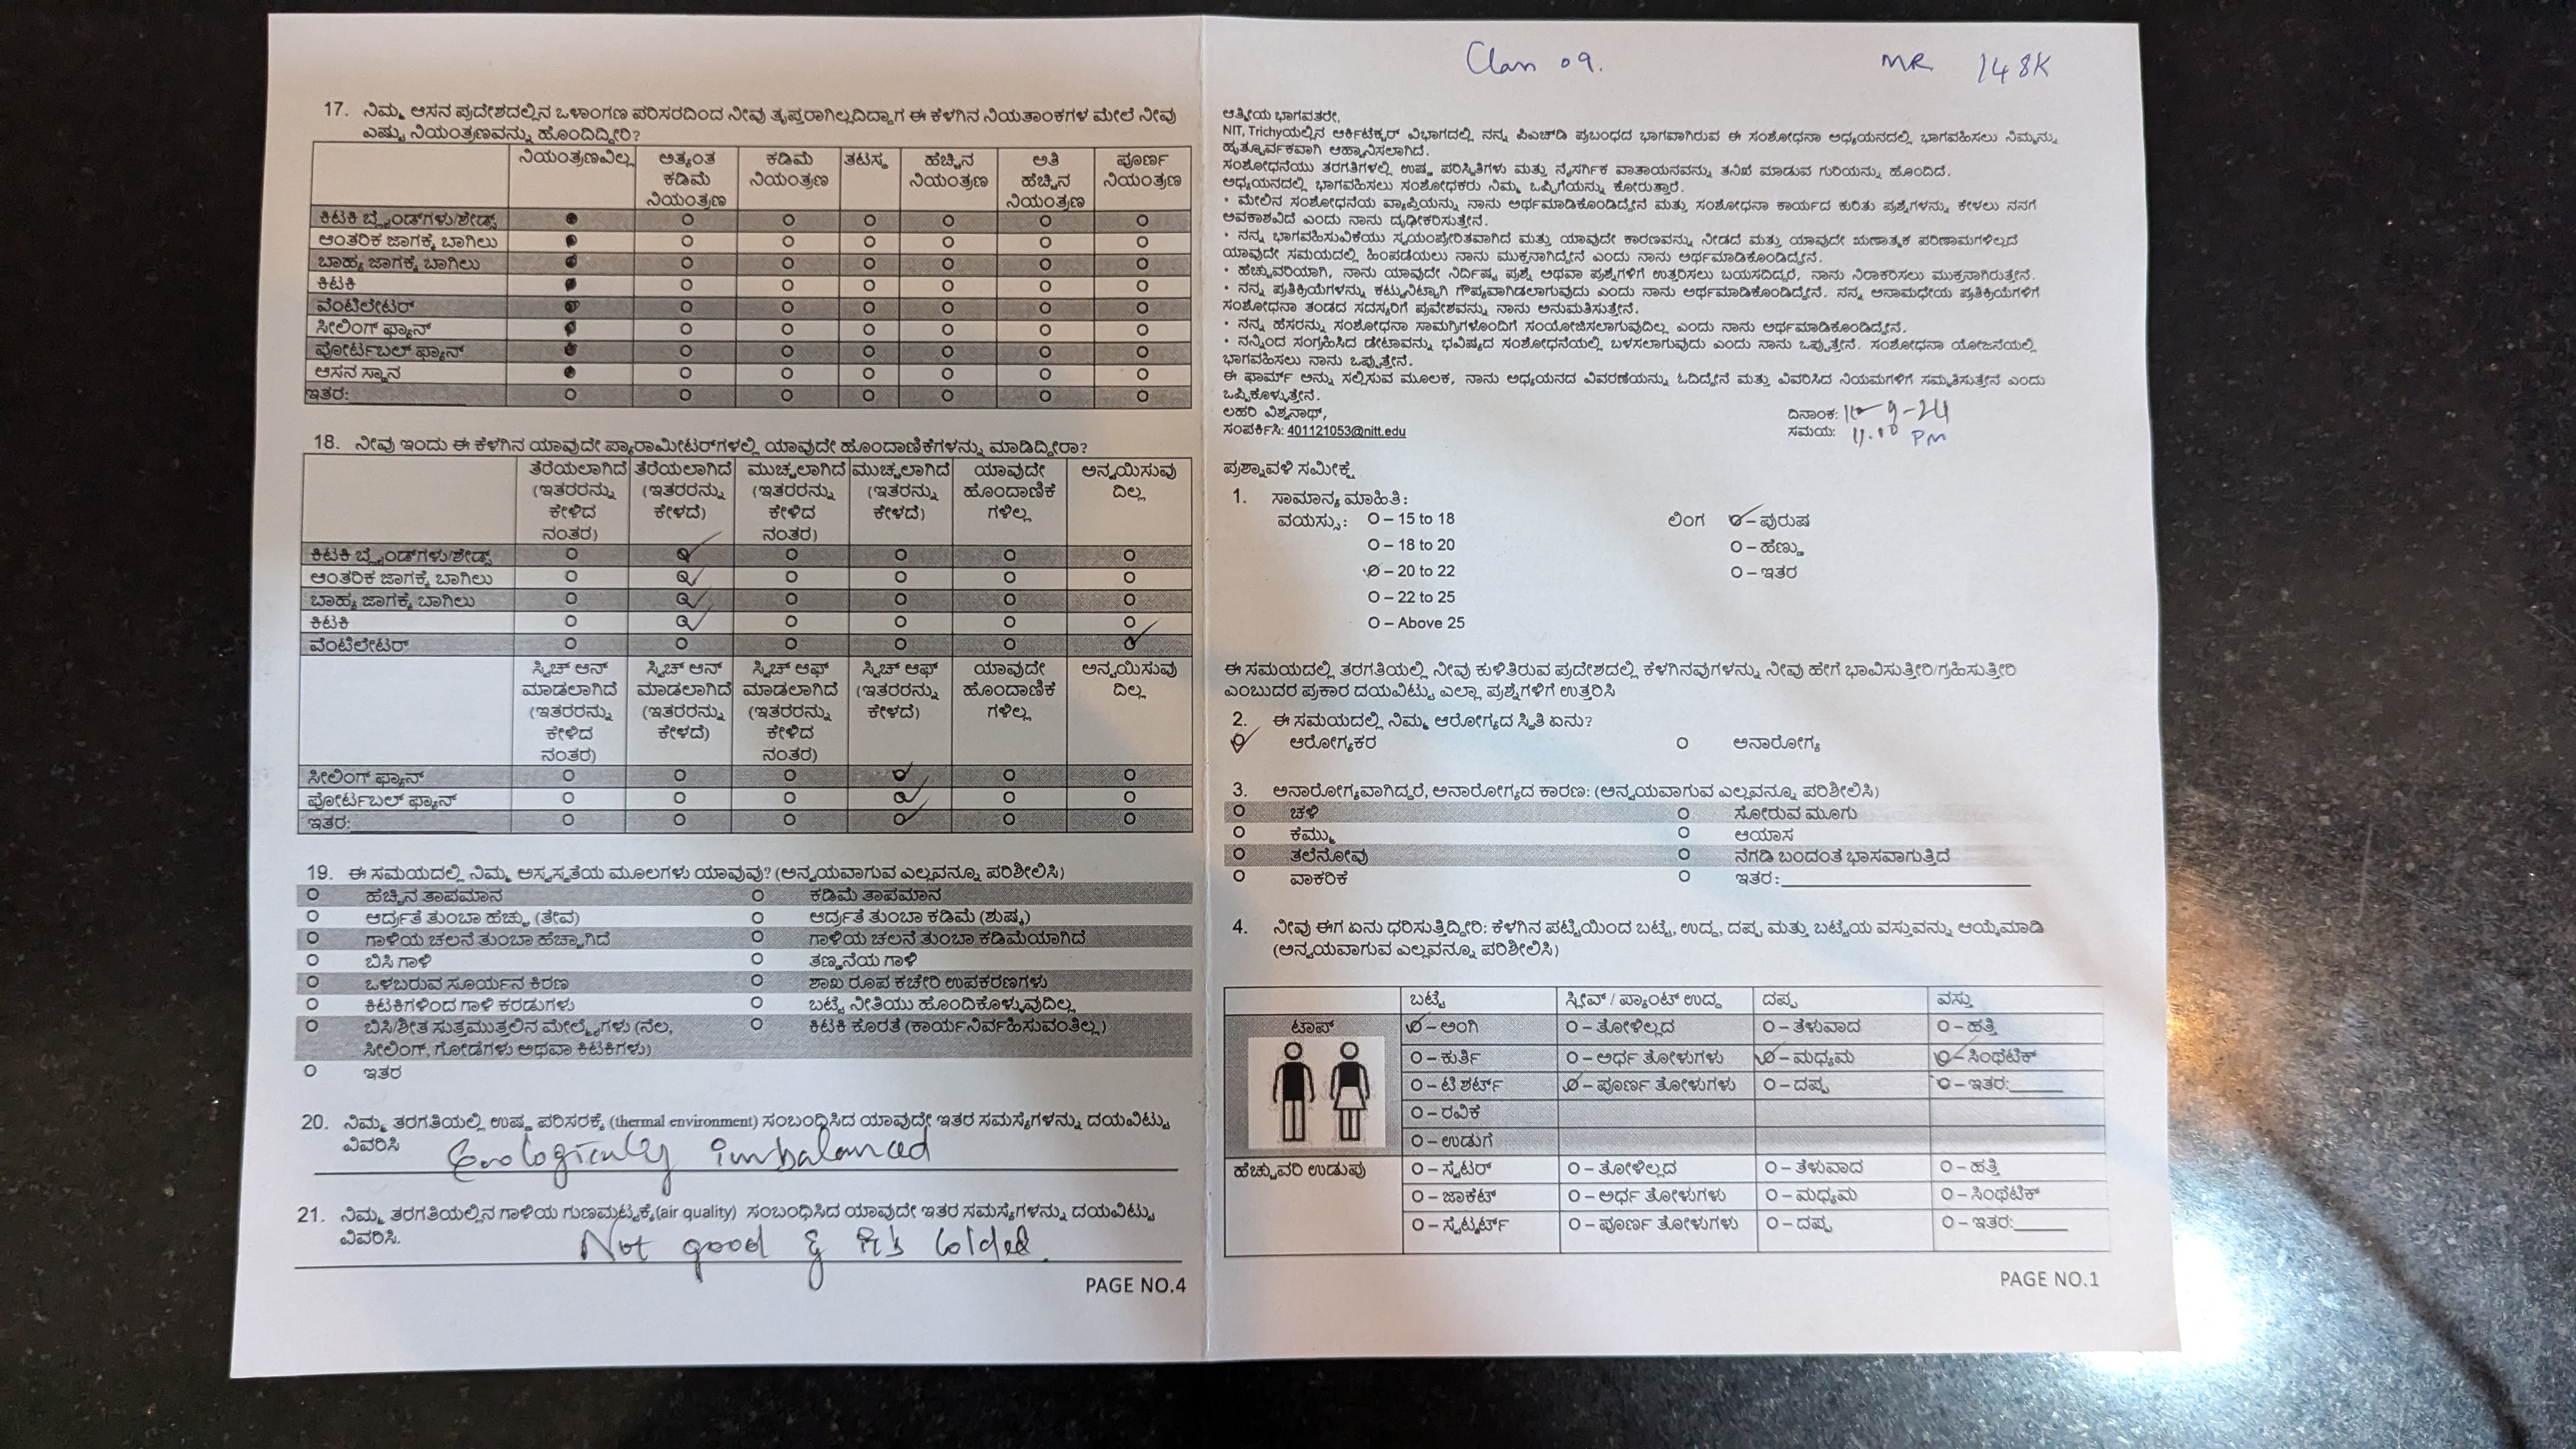 17. ನಿಮ್ಮ ಆಸನ ಪ್ರದೇಶದಲ್ಲಿನ ಒಳಾಂಗಣ ಪರಿಸರದಿಂದ ನೀವು ತೃಪ್ತರಾಗಿಲ್ಲದಿದ್ದಾಗ ಈ ಕೆಳಗಿನ ನಿಯತಾಂಕಗಳ ಮೇಲೆ ನೀವು
ಎಷ್ಟು ನಿಯಂತ್ರಣವನ್ನು ಹೊಂದಿದ್ದೀರಿ?
ನಿಯಂತ್ರಣವಿಲ್ಲ ಅತ್ಯಂತ ಕಡಿಮೆ ತಟಸ್ಥ ಹೆಚ್ಚಿನ ಅತಿ ಪೂರ್ಣ
ಕಡಿಮೆ ನಿಯಂತ್ರಣ ನಿಯಂತ್ರಣ ಹೆಚ್ಚಿನ ನಿಯಂತ್ರಣ
ನಿಯಂತ್ರಣ ನಿಯಂತ್ರಣ
ಕಿಟಕಿ ಬ್ಲೈಂಡ್‌ಗಳು/ಶೇಡ್ಸ್
ಆಂತರಿಕ ಜಾಗಕ್ಕೆ ಬಾಗಿಲು
ಬಾಹ್ಯ ಜಾಗಕ್ಕೆ ಬಾಗಿಲು
ಕಿಟಕಿ
ವೆಂಟಿಲೇಟರ್
ಸೀಲಿಂಗ್ ಫ್ಯಾನ್
ಪೋರ್ಟಬಲ್ ಫ್ಯಾನ್
ಆಸನ ಸ್ಥಾನ
ಇತರ:
18. ನೀವು ಇಂದು ಈ ಕೆಳಗಿನ ಯಾವುದೇ ಪ್ಯಾರಾಮೀಟರ್‌ಗಳಲ್ಲಿ ಯಾವುದೇ ಹೊಂದಾಣಿಕೆಗಳನ್ನು ಮಾಡಿದ್ದೀರಾ?
ತೆರೆಯಲಾಗಿದೆ ತೆರೆಯಲಾಗಿದೆ ಮುಚ್ಚಲಾಗಿದೆ ಮುಚ್ಚಲಾಗಿದೆ ಯಾವುದೇ ಅನ್ವಯಿಸುವು
(ಇತರರನ್ನು (ಇತರರನ್ನು (ಇತರರನ್ನು (ಇತರರನ್ನು ಹೊಂದಾಣಿಕೆ ದಿಲ್ಲ
ಕೇಳಿದ ಕೇಳದೆ) ಕೇಳಿದ ಕೇಳದೆ) ಗಳಿಲ್ಲ
ನಂತರ) ನಂತರ)
ಕಿಟಕಿ ಬ್ಲೈಂಡ್‌ಗಳು/ಶೇಡ್ಸ್
ಆಂತರಿಕ ಜಾಗಕ್ಕೆ ಬಾಗಿಲು
ಬಾಹ್ಯ ಜಾಗಕ್ಕೆ ಬಾಗಿಲು
ಕಿಟಕಿ
ವೆಂಟಿಲೇಟರ್
ಸ್ವಿಚ್ ಆನ್ ಸ್ವಿಚ್ ಆನ್ ಸ್ವಿಚ್ ಆಫ್ ಸ್ವಿಚ್ ಆಫ್ ಯಾವುದೇ ಅನ್ವಯಿಸುವು
ಮಾಡಲಾಗಿದೆ ಮಾಡಲಾಗಿದೆ ಮಾಡಲಾಗಿದೆ (ಇತರರನ್ನು ಹೊಂದಾಣಿಕೆ ದಿಲ್ಲ
(ಇತರರನ್ನು (ಇತರರನ್ನು (ಇತರರನ್ನು ಕೇಳದೆ) ಗಳಿಲ್ಲ
ಕೇಳಿದ ಕೇಳದೆ) ಕೇಳಿದ
ನಂತರ) ನಂತರ)
ಸೀಲಿಂಗ್ ಫ್ಯಾನ್
ಪೋರ್ಟಬಲ್ ಫ್ಯಾನ್
ಇತರ:
19. ಈ ಸಮಯದಲ್ಲಿ ನಿಮ್ಮ ಅಸ್ವಸ್ಥತೆಯ ಮೂಲಗಳು ಯಾವುವು? (ಅನ್ವಯವಾಗುವ ಎಲ್ಲವನ್ನೂ ಪರಿಶೀಲಿಸಿ)
ಹೆಚ್ಚಿನ ತಾಪಮಾನ ಕಡಿಮೆ ತಾಪಮಾನ
ಆರ್ದ್ರತೆ ತುಂಬಾ ಹೆಚ್ಚು (ತೇವ) ಆರ್ದ್ರತೆ ತುಂಬಾ ಕಡಿಮೆ (ಶುಷ್ಕ)
ಗಾಳಿಯ ಚಲನೆ ತುಂಬಾ ಹೆಚ್ಚಾಗಿದೆ ಗಾಳಿಯ ಚಲನೆ ತುಂಬಾ ಕಡಿಮೆಯಾಗಿದೆ
ಬಿಸಿ ಗಾಳಿ ತಣ್ಣನೆಯ ಗಾಳಿ
ಒಳಬರುವ ಸೂರ್ಯನ ಕಿರಣ ಶಾಖ ರೂಪ ಕಚೇರಿ ಉಪಕರಣಗಳು
ಕಿಟಕಿಗಳಿಂದ ಗಾಳಿ ಕರಡುಗಳು ಬಟ್ಟೆ ನೀತಿಯು ಹೊಂದಿಕೊಳ್ಳುವುದಿಲ್ಲ
ಬಿಸಿ/ಶೀತ ಸುತ್ತಮುತ್ತಲಿನ ಮೇಲ್ಮೈಗಳು (ನೆಲ, ಕಿಟಕಿ ಕೊರತೆ (ಕಾರ್ಯನಿರ್ವಹಿಸುವಂತಿಲ್ಲ)
ಸೀಲಿಂಗ್, ಗೋಡೆಗಳು ಅಥವಾ ಕಿಟಕಿಗಳು)
ಇತರ
20. ನಿಮ್ಮ ತರಗತಿಯಲ್ಲಿ ಉಷ್ಣ ಪರಿಸರಕ್ಕೆ (thermal environment) ಸಂಬಂಧಿಸಿದ ಯಾವುದೇ ಇತರ ಸಮಸ್ಯೆಗಳನ್ನು ದಯವಿಟ್ಟು
ವಿವರಿಸಿ imbalanced
21. ನಿಮ್ಮ ತರಗತಿಯಲ್ಲಿನ ಗಾಳಿಯ ಗುಣಮಟ್ಟಕ್ಕೆ(air quality) ಸಂಬಂಧಿಸಿದ ಯಾವುದೇ ಇತರ ಸಮಸ್ಯೆಗಳನ್ನು ದಯವಿಟ್ಟು
ವಿವರಿಸಿ. Not good & it's colded.
PAGE NO.4
Class 09. MR 148K
ಆತ್ಮೀಯ ಭಾಗವತರೇ,
NIT, Trichyಯಲ್ಲಿನ ಆರ್ಕಿಟೆಕ್ಚರ್ ವಿಭಾಗದಲ್ಲಿ ನನ್ನ ಪಿಎಚ್‌ಡಿ ಪ್ರಬಂಧದ ಭಾಗವಾಗಿರುವ ಈ ಸಂಶೋಧನಾ ಅಧ್ಯಯನದಲ್ಲಿ ಭಾಗವಹಿಸಲು ನಿಮ್ಮನ್ನು
ಹೃತ್ಪೂರ್ವಕವಾಗಿ ಆಹ್ವಾನಿಸಲಾಗಿದೆ.
ಸಂಶೋಧನೆಯು ತರಗತಿಗಳಲ್ಲಿ ಉಷ್ಣ ಪರಿಸ್ಥಿತಿಗಳು ಮತ್ತು ನೈಸರ್ಗಿಕ ವಾತಾಯನವನ್ನು ತನಿಖೆ ಮಾಡುವ ಗುರಿಯನ್ನು ಹೊಂದಿದೆ.
ಅಧ್ಯಯನದಲ್ಲಿ ಭಾಗವಹಿಸಲು ಸಂಶೋಧಕರು ನಿಮ್ಮ ಒಪ್ಪಿಗೆಯನ್ನು ಕೋರುತ್ತಾರೆ.
• ಮೇಲಿನ ಸಂಶೋಧನೆಯ ವ್ಯಾಪ್ತಿಯನ್ನು ನಾನು ಅರ್ಥಮಾಡಿಕೊಂಡಿದ್ದೇನೆ ಮತ್ತು ಸಂಶೋಧನಾ ಕಾರ್ಯದ ಕುರಿತು ಪ್ರಶ್ನೆಗಳನ್ನು ಕೇಳಲು ನನಗೆ
ಅವಕಾಶವಿದೆ ಎಂದು ನಾನು ದೃಢೀಕರಿಸುತ್ತೇನೆ.
• ನನ್ನ ಭಾಗವಹಿಸುವಿಕೆಯು ಸ್ವಯಂಪ್ರೇರಿತವಾಗಿದೆ ಮತ್ತು ಯಾವುದೇ ಕಾರಣವನ್ನು ನೀಡದೆ ಮತ್ತು ಯಾವುದೇ ಋಣಾತ್ಮಕ ಪರಿಣಾಮಗಳಿಲ್ಲದೆ
ಯಾವುದೇ ಸಮಯದಲ್ಲಿ ಹಿಂಪಡೆಯಲು ನಾನು ಮುಕ್ತನಾಗಿದ್ದೇನೆ ಎಂದು ನಾನು ಅರ್ಥಮಾಡಿಕೊಂಡಿದ್ದೇನೆ.
• ಹೆಚ್ಚುವರಿಯಾಗಿ, ನಾನು ಯಾವುದೇ ನಿರ್ದಿಷ್ಟ ಪ್ರಶ್ನೆ ಅಥವಾ ಪ್ರಶ್ನೆಗಳಿಗೆ ಉತ್ತರಿಸಲು ಬಯಸದಿದ್ದರೆ, ನಾನು ನಿರಾಕರಿಸಲು ಮುಕ್ತನಾಗಿರುತ್ತೇನೆ.
• ನನ್ನ ಪ್ರತಿಕ್ರಿಯೆಗಳನ್ನು ಕಟ್ಟುನಿಟ್ಟಾಗಿ ಗೌಪ್ಯವಾಗಿಡಲಾಗುವುದು ಎಂದು ನಾನು ಅರ್ಥಮಾಡಿಕೊಂಡಿದ್ದೇನೆ. ನನ್ನ ಅನಾಮಧೇಯ ಪ್ರತಿಕ್ರಿಯೆಗಳಿಗೆ
ಸಂಶೋಧನಾ ತಂಡದ ಸದಸ್ಯರಿಗೆ ಪ್ರವೇಶವನ್ನು ನಾನು ಅನುಮತಿಸುತ್ತೇನೆ.
• ನನ್ನ ಹೆಸರನ್ನು ಸಂಶೋಧನಾ ಸಾಮಗ್ರಿಗಳೊಂದಿಗೆ ಸಂಯೋಜಿಸಲಾಗುವುದಿಲ್ಲ ಎಂದು ನಾನು ಅರ್ಥಮಾಡಿಕೊಂಡಿದ್ದೇನೆ.
• ನನ್ನಿಂದ ಸಂಗ್ರಹಿಸಿದ ಡೇಟಾವನ್ನು ಭವಿಷ್ಯದ ಸಂಶೋಧನೆಯಲ್ಲಿ ಬಳಸಲಾಗುವುದು ಎಂದು ನಾನು ಒಪ್ಪುತ್ತೇನೆ. ಸಂಶೋಧನಾ ಯೋಜನೆಯಲ್ಲಿ
ಭಾಗವಹಿಸಲು ನಾನು ಒಪ್ಪುತ್ತೇನೆ.
ಈ ಫಾರ್ಮ್ ಅನ್ನು ಸಲ್ಲಿಸುವ ಮೂಲಕ, ನಾನು ಅಧ್ಯಯನದ ವಿವರಣೆಯನ್ನು ಓದಿದ್ದೇನೆ ಮತ್ತು ವಿವರಿಸಿದ ನಿಯಮಗಳಿಗೆ ಸಮ್ಮತಿಸುತ್ತೇನೆ ಎಂದು
ಒಪ್ಪಿಕೊಳ್ಳುತ್ತೇನೆ.
ಲಹರಿ ವಿಶ್ವನಾಥ್, ದಿನಾಂಕ:
ಸಂಪರ್ಕಿಸಿ: 401121053@nitt.edu ಸಮಯ: 11.10 PM
ಪ್ರಶ್ನಾವಳಿ ಸಮೀಕ್ಷೆ
1. ಸಾಮಾನ್ಯ ಮಾಹಿತಿ:
ವಯಸ್ಸು: O – 15 to 18 ಲಿಂಗ O – ಪುರುಷ
O – 18 to 20 O – ಹೆಣ್ಣು
O – 20 to 22 O – ಇತರ
O – 22 to 25
O – Above 25
ಈ ಸಮಯದಲ್ಲಿ ತರಗತಿಯಲ್ಲಿ ನೀವು ಕುಳಿತಿರುವ ಪ್ರದೇಶದಲ್ಲಿ ಕೆಳಗಿನವುಗಳನ್ನು ನೀವು ಹೇಗೆ ಭಾವಿಸುತ್ತೀರಿ/ಗ್ರಹಿಸುತ್ತೀರಿ
ಎಂಬುದರ ಪ್ರಕಾರ ದಯವಿಟ್ಟು ಎಲ್ಲಾ ಪ್ರಶ್ನೆಗಳಿಗೆ ಉತ್ತರಿಸಿ
2. ಈ ಸಮಯದಲ್ಲಿ ನಿಮ್ಮ ಆರೋಗ್ಯದ ಸ್ಥಿತಿ ಏನು?
ಆರೋಗ್ಯಕರ ಅನಾರೋಗ್ಯ
3. ಅನಾರೋಗ್ಯವಾಗಿದ್ದರೆ, ಅನಾರೋಗ್ಯದ ಕಾರಣ: (ಅನ್ವಯವಾಗುವ ಎಲ್ಲವನ್ನೂ ಪರಿಶೀಲಿಸಿ)
ಚಳಿ ಸೋರುವ ಮೂಗು
ಕೆಮ್ಮು ಆಯಾಸ
ತಲೆನೋವು ನೆಗಡಿ ಬಂದಂತೆ ಭಾಸವಾಗುತ್ತಿದೆ
ವಾಕರಿಕೆ ಇತರ:
4. ನೀವು ಈಗ ಏನು ಧರಿಸುತ್ತಿದ್ದೀರಿ: ಕೆಳಗಿನ ಪಟ್ಟಿಯಿಂದ ಬಟ್ಟೆ, ಉದ್ದ, ದಪ್ಪ ಮತ್ತು ಬಟ್ಟೆಯ ವಸ್ತುವನ್ನು ಆಯ್ಕೆಮಾಡಿ
(ಅನ್ವಯವಾಗುವ ಎಲ್ಲವನ್ನೂ ಪರಿಶೀಲಿಸಿ)
ಬಟ್ಟೆ ಸ್ಲೀವ್ / ಪ್ಯಾಂಟ್ ಉದ್ದ ದಪ್ಪ ವಸ್ತು
ಟಾಪ್ O – ಅಂಗಿ O – ತೋಳಿಲ್ಲದ O – ತೆಳುವಾದ O – ಹತ್ತಿ
O – ಕುರ್ತಿ O – ಅರ್ಧ ತೋಳುಗಳು O – ಮಧ್ಯಮ O – ಸಿಂಥೆಟಿಕ್
O – ಟಿ ಶರ್ಟ್ O – ಪೂರ್ಣ ತೋಳುಗಳು O – ದಪ್ಪ O – ಇತರ:
O – ರವಿಕೆ
O – ಉಡುಗೆ
ಹೆಚ್ಚುವರಿ ಉಡುಪು O – ಸ್ವೆಟರ್ O – ತೋಳಿಲ್ಲದ O – ತೆಳುವಾದ O – ಹತ್ತಿ
O – ಜಾಕೆಟ್ O – ಅರ್ಧ ತೋಳುಗಳು O – ಮಧ್ಯಮ O – ಸಿಂಥೆಟಿಕ್
O – ಸ್ವೆಟ್ಶರ್ಟ್ O – ಪೂರ್ಣ ತೋಳುಗಳು O – ದಪ್ಪ O – ಇತರ:
PAGE NO.1